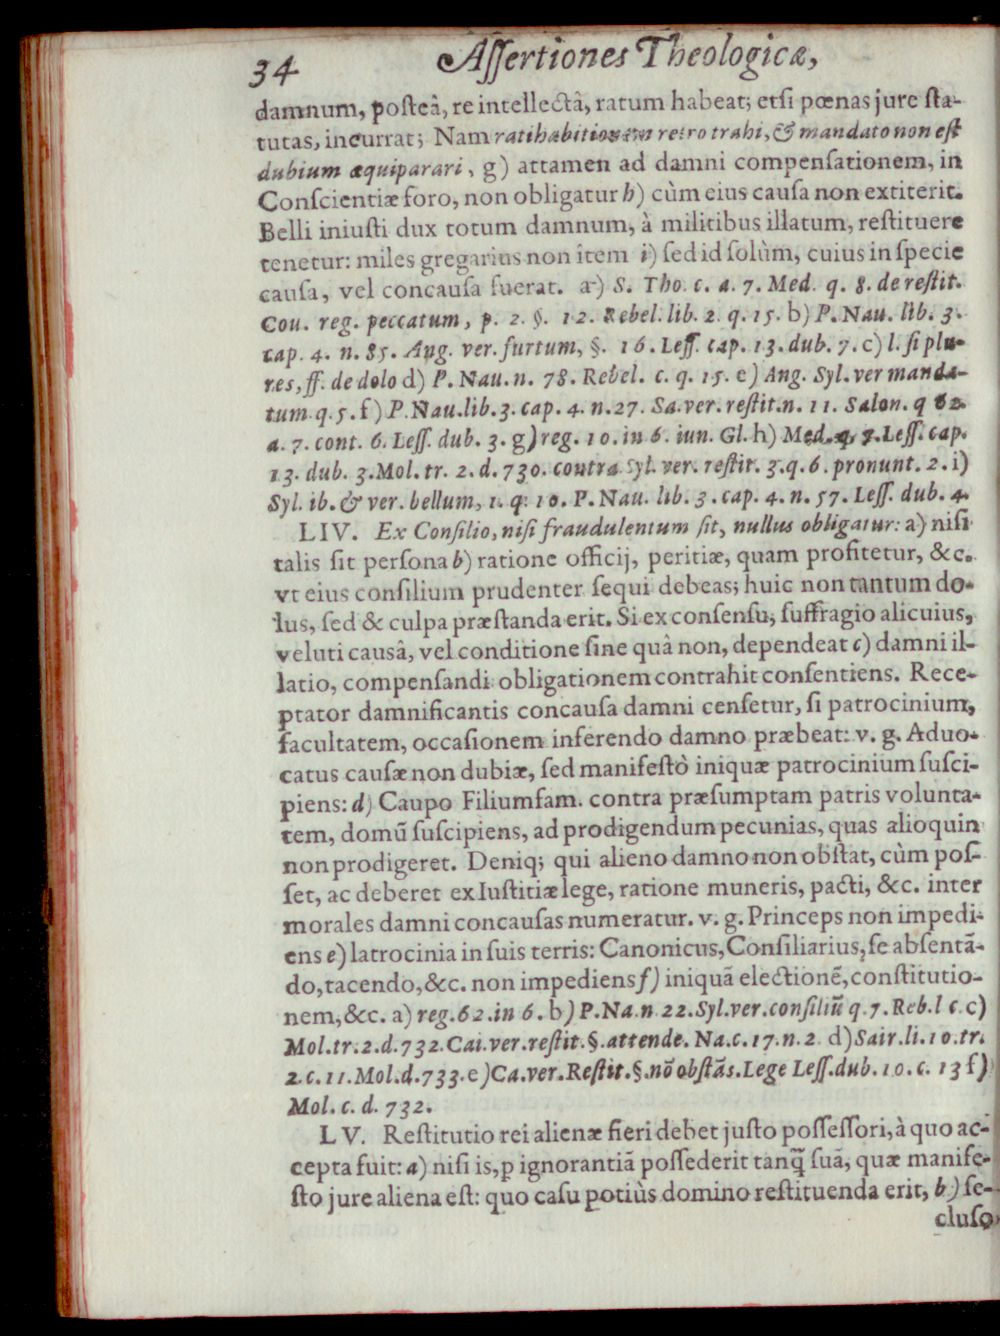 34 Aſſertiones Theologicæ,
damnum, poſteâ, re intellectâ, ratum habeat; etſi pœnas jure ſta-
tutas, incurrat; Nam ratihabitionem retro trahi, & mandato non eſt
dubium æquiparari, g) attamen ad damni compenſationem, in
Conſcientiæ foro, non obligatur h) cùm eius cauſa non extiterit.
Belli iniuſti dux totum damnum, à militibus illatum, reſtituere
tenetur: miles gregarius non item i) ſed id ſolùm, cuius in ſpecie
cauſa, vel concauſa fuerat. a) S. Tho. c. a. 7. Med. q. 8. de reſtit.
Cou. reg. peccatum, p. 2. §. 12. Rebel. lib. 2. q. 15. b) P. Nau. lib. 3.
cap. 4. n. 85. Ang. ver. furtum, §. 16. Leſſ. cap. 13. dub. 7. c) l. ſi plu-
res, ff. de dolo d) P. Nau. n. 78. Rebel. c. q. 15. e) Ang. Syl. ver manda-
tum q. 5. f) P. Nau. lib. 3. cap. 4. n. 27. Sa. ver. reſtit. n. 11. Salon. q 62.
a. 7. cont. 6. Leſſ. dub. 3. g) reg. 10. in 6. iun. Gl. h) Med. q. 7. Leſſ. cap.
13. dub. 3. Mol. tr. 2. d. 730. contra Syl. ver. reſtit. 3. q. 6. pronunt. 2. i)
Syl. ib. & ver. bellum, 1. q. 10. P. Nau. lib. 3. cap. 4. n. 57. Leſſ. dub. 4.
LIV. Ex Conſilio, niſi fraudulentum ſit, nullus obligatur: a) niſi
talis ſit perſona b) ratione officij, peritiæ, quam profitetur, &c.
vt eius conſilium prudenter ſequi debeas; huic non tantum do-
lus, ſed & culpa præſtanda erit. Si ex conſenſu, ſuffragio alicuius,
veluti causâ, vel conditione ſine quâ non, dependeat c) damni il-
latio, compenſandi obligationem contrahit conſentiens. Rece-
ptator damnificantis concauſa damni cenſetur, ſi patrocinium,
facultatem, occaſionem inferendo damno præbeat: v. g. Aduo-
catus cauſæ non dubiæ, ſed manifeſtò iniquæ patrocinium ſuſci-
piens: d) Caupo Filiumfam. contra præſumptam patris volunta-
tem, domũ ſuſcipiens, ad prodigendum pecunias, quas alioquin
non prodigeret. Deniq; qui alieno damno non obſtat, cùm poſ-
ſet, ac deberet ex Iuſtitiæ lege, ratione muneris, pacti, &c. inter
morales damni concauſas numeratur. v. g. Princeps non impedi-
ens e) latrocinia in ſuis terris: Canonicus, Conſiliarius, ſe abſentã-
do, tacendo, &c. non impediens f) iniquã electionẽ, conſtitutio-
nem, &c. a) reg. 62. in 6. b) P. Na. n. 22. Syl. ver. conſiliũ q. 7. Reb. l c. c)
Mol. tr. 2. d. 732. Cai. ver. reſtit. §. attende. Na. c. 17. n. 2 d) Sair. li. 10. tr.
2. c. 11. Mol. d. 733. e) Ca. ver. Reſtit. §. nõ obſtãs. Lege Leſſ. dub. 10. c. 13 f)
Mol. c. d. 732.
LV. Reſtitutio rei alienæ fieri debet juſto poſſeſſori, à quo ac-
cepta fuit: a) niſi is, p ignorantiã poſſederit tanq̃ ſuã, quæ manife-
ſto jure aliena eſt: quo caſu potiùs domino reſtituenda erit, b) ſe-
cluſo